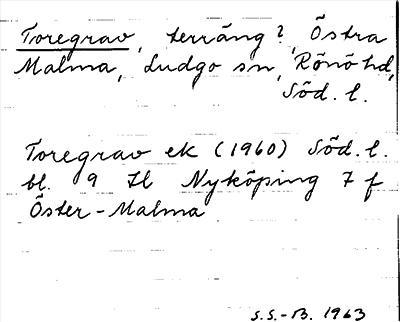 Toregrav, terräng?, Östra
Malma, Ludgo sn, Rönö hd,
Söd. l.
Toregrav ek (1960) Söd. l.
bl. 9 Il Nyköping 7 f
Öster-Malma
S.S.-B. 1963